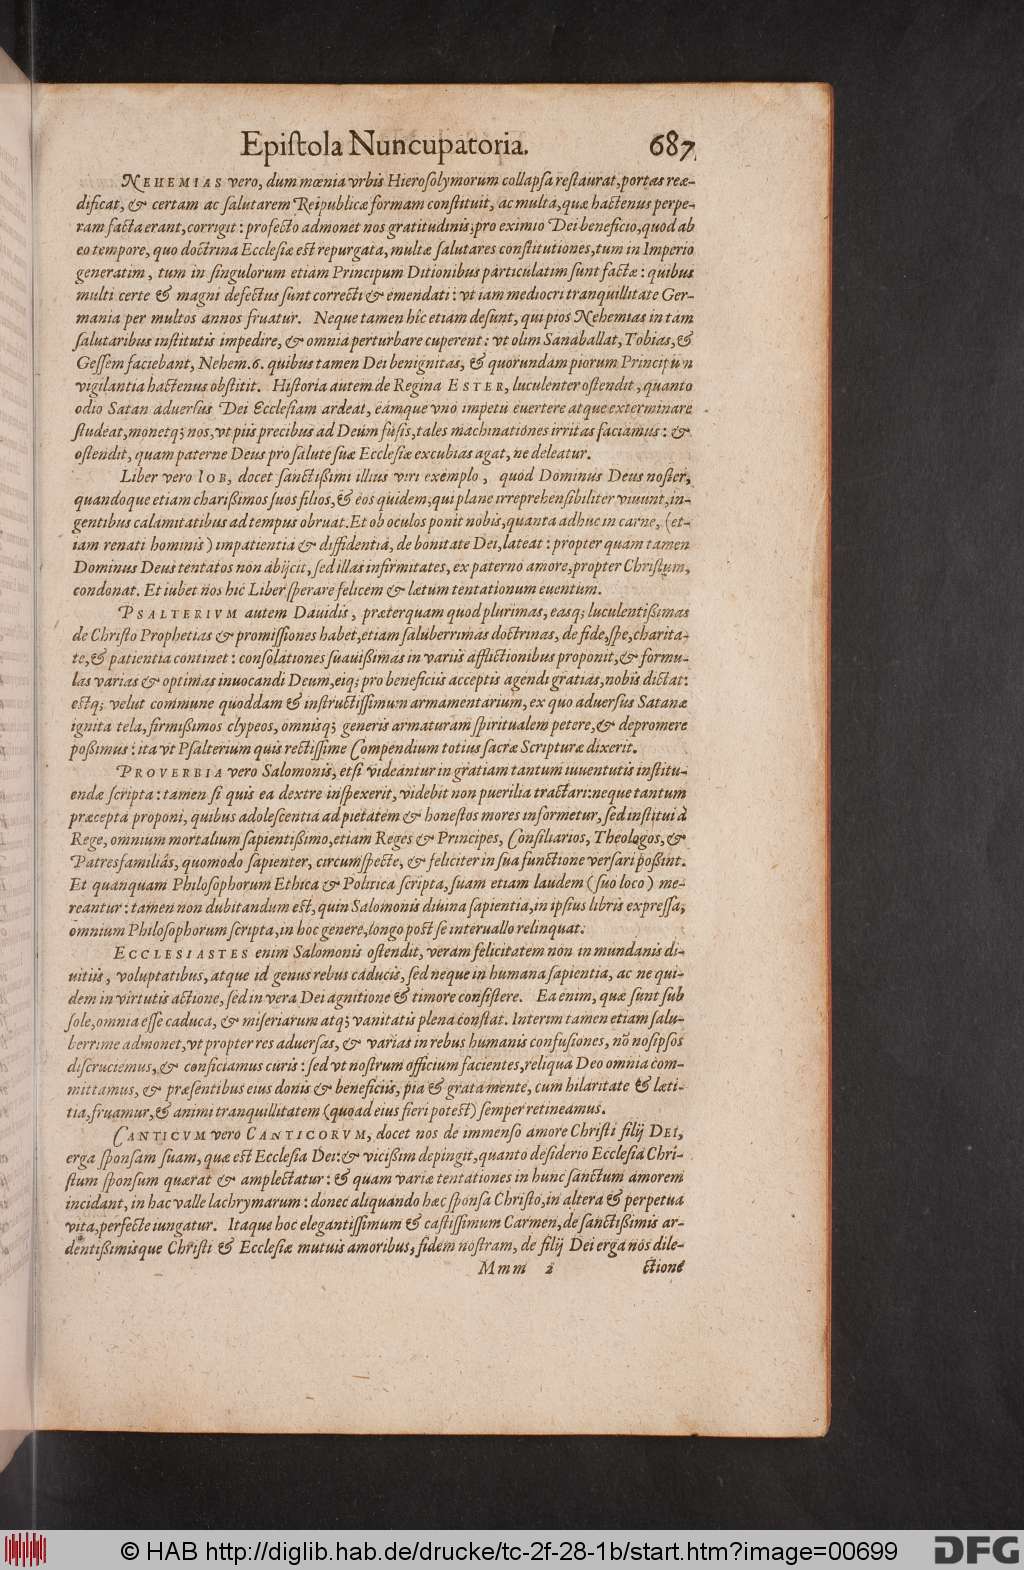 Epistola Nuncupatoria. 687
NEHEMIAS vero, dum mœnia vrbis Hierosolymorum collapsa restaurat, portas reæ-
dificat, & certam ac salutarem Reipublicæ formam constituit, ac multa, quæ hactenus perpe-
ram facta erant, corrigit: profecto admonet nos gratitudinis, pro eximio Dei beneficio, quod ab
eo tempore, quo doctrina Ecclesiæ est repurgata, multæ salutares constitutiones, tum in Imperio
generatim, tum in singulorum etiam Principum Ditionibus particulatim sunt factæ: quibus
multi certe & magni defectus sunt correcti & emendati: vt iam mediocri tranquillitate Ger-
mania per multos annos fruatur. Neque tamen hîc etiam desunt, qui pios Nehemias in tam
salutaribus institutis impedire, & omnia perturbare cuperent: vt olim Sanaballat, Tobias, &
Gessem faciebant, Nehem. 6. quibus tamen Dei benignitas, & quorundam piorum Principum
vigilantia hactenus obstitit. Historia autem de Regina ESTER, luculenter ostendit, quanto
odio Satan adversus Dei Ecclesiam ardeat, eamque vno impetu evertere atque exterminare
studeat, monetq; nos, vt piis precibus ad Deum fusis, tales machinationes irritas faciamus: &
ostendit, quam paterne Deus pro salute suæ Ecclesiæ excubias agat, ne deleatur.
Liber vero IOB, docet sanctißimi illius viri exemplo, quod Dominus Deus noster,
quandoque etiam charißimos suos filios, & eos quidem, qui plane irreprehensibiliter viuunt, in-
gentibus calamitatibus ad tempus obruat. Et ob oculos ponit nobis, quanta adhuc in carne, (et-
iam renati hominis) impatientia & diffidentia, de bonitate Dei, lateat: propter quam tamen
Dominus Deus tentatos non abijcit, sed illas infirmitates, ex paterno amore, propter Christum,
condonat. Et iubet nos hic Liber sperare felicem & lætum tentationum euentum.
PSALTERIVM autem Dauidis, præterquam quod plurimas, easq; luculentißimas
de Christo Prophetias & promissiones habet, etiam saluberrimas doctrinas, de fide, spe, charita-
te, & patientia continet: consolationes suauißimas in variis afflictionibus proponit, & formu-
las varias & optimas inuocandi Deum, eiq; pro beneficiis acceptis agendi gratias, nobis dictat:
estq; velut commune quoddam & instructissimum armamentarium, ex quo adversus Satanæ
ignita tela, firmißimos clypeos, omnisq; generis armaturam spiritualem petere, & depromere
poßimus: ita vt Psalterium quis rectissime Compendium totius sacræ Scripturæ dixerit.
PROVERBIA vero Salomonis, etsi videantur in gratiam tantum iuuentutis institu-
endæ scripta: tamen si quis ea dextre inspexerit, videbit non puerilia tractari: neque tantum
præcepta proponi, quibus adolescentia ad pietatem & honestos mores informetur, sed institui à
Rege, omnium mortalium sapientißimo, etiam Reges & Principes, Consiliarios, Theologos, &
Patresfamiliâs, quomodo sapienter, circumspecte, & feliciter in sua functione versari poßint.
Et quanquam Philosophorum Ethica & Politica scripta, suam etiam laudem (suo loco) me-
reantur: tamen non dubitandum est, quin Salomonis diuina sapientia, in ipsius libris expressa,
omnium Philosophorum scripta, in hoc genere, longo post se interuallo relinquat.
ECCLESIASTES enim Salomonis ostendit, veram felicitatem non in mundanis di-
uitiis, voluptatibus, atque id genus rebus caducis, sed neque in humana sapientia, ac ne qui-
dem in virtutis actione, sed in vera Dei agnitione & timore consistere. Ea enim, quæ sunt sub
sole, omnia esse caduca, & miseriarum atq; vanitatis plena constat. Interim tamen etiam salu-
berrime admonet, vt propter res aduersas, & varias in rebus humanis confusiones, nõ nosipsos
discruciemus, & conficiamus curis: sed vt nostrum officium facientes, reliqua Deo omnia com-
mittamus, & præsentibus eius donis & beneficiis, pia & grata mente, cum hilaritate & læti-
tia, fruamur, & animi tranquillitatem (quoad eius fieri potest) semper retineamus.
CANTICVM vero CANTICORVM, docet nos de immenso amore Christi filij DEI,
erga sponsam suam, quæ est Ecclesia Dei: & vicißim depingit, quanto desiderio Ecclesia Chri-
stum sponsum quærat & amplectatur: & quam variæ tentationes in hunc sanctum amorem
incidant, in hac valle lachrymarum: donec aliquando hæc sponsa Christo, in altera & perpetua
vita, perfecte iungatur. Itaque hoc elegantissimum & castissimum Carmen, de sanctißimis ar-
dentißimisque Christi & Ecclesiæ mutuis amoribus, fidem nostram, de filij Dei erga nos dile-
Mmm 2 ctione
© HAB http://diglib.hab.de/drucke/tc-2f-28-1b/start.htm?image=00699
DFG